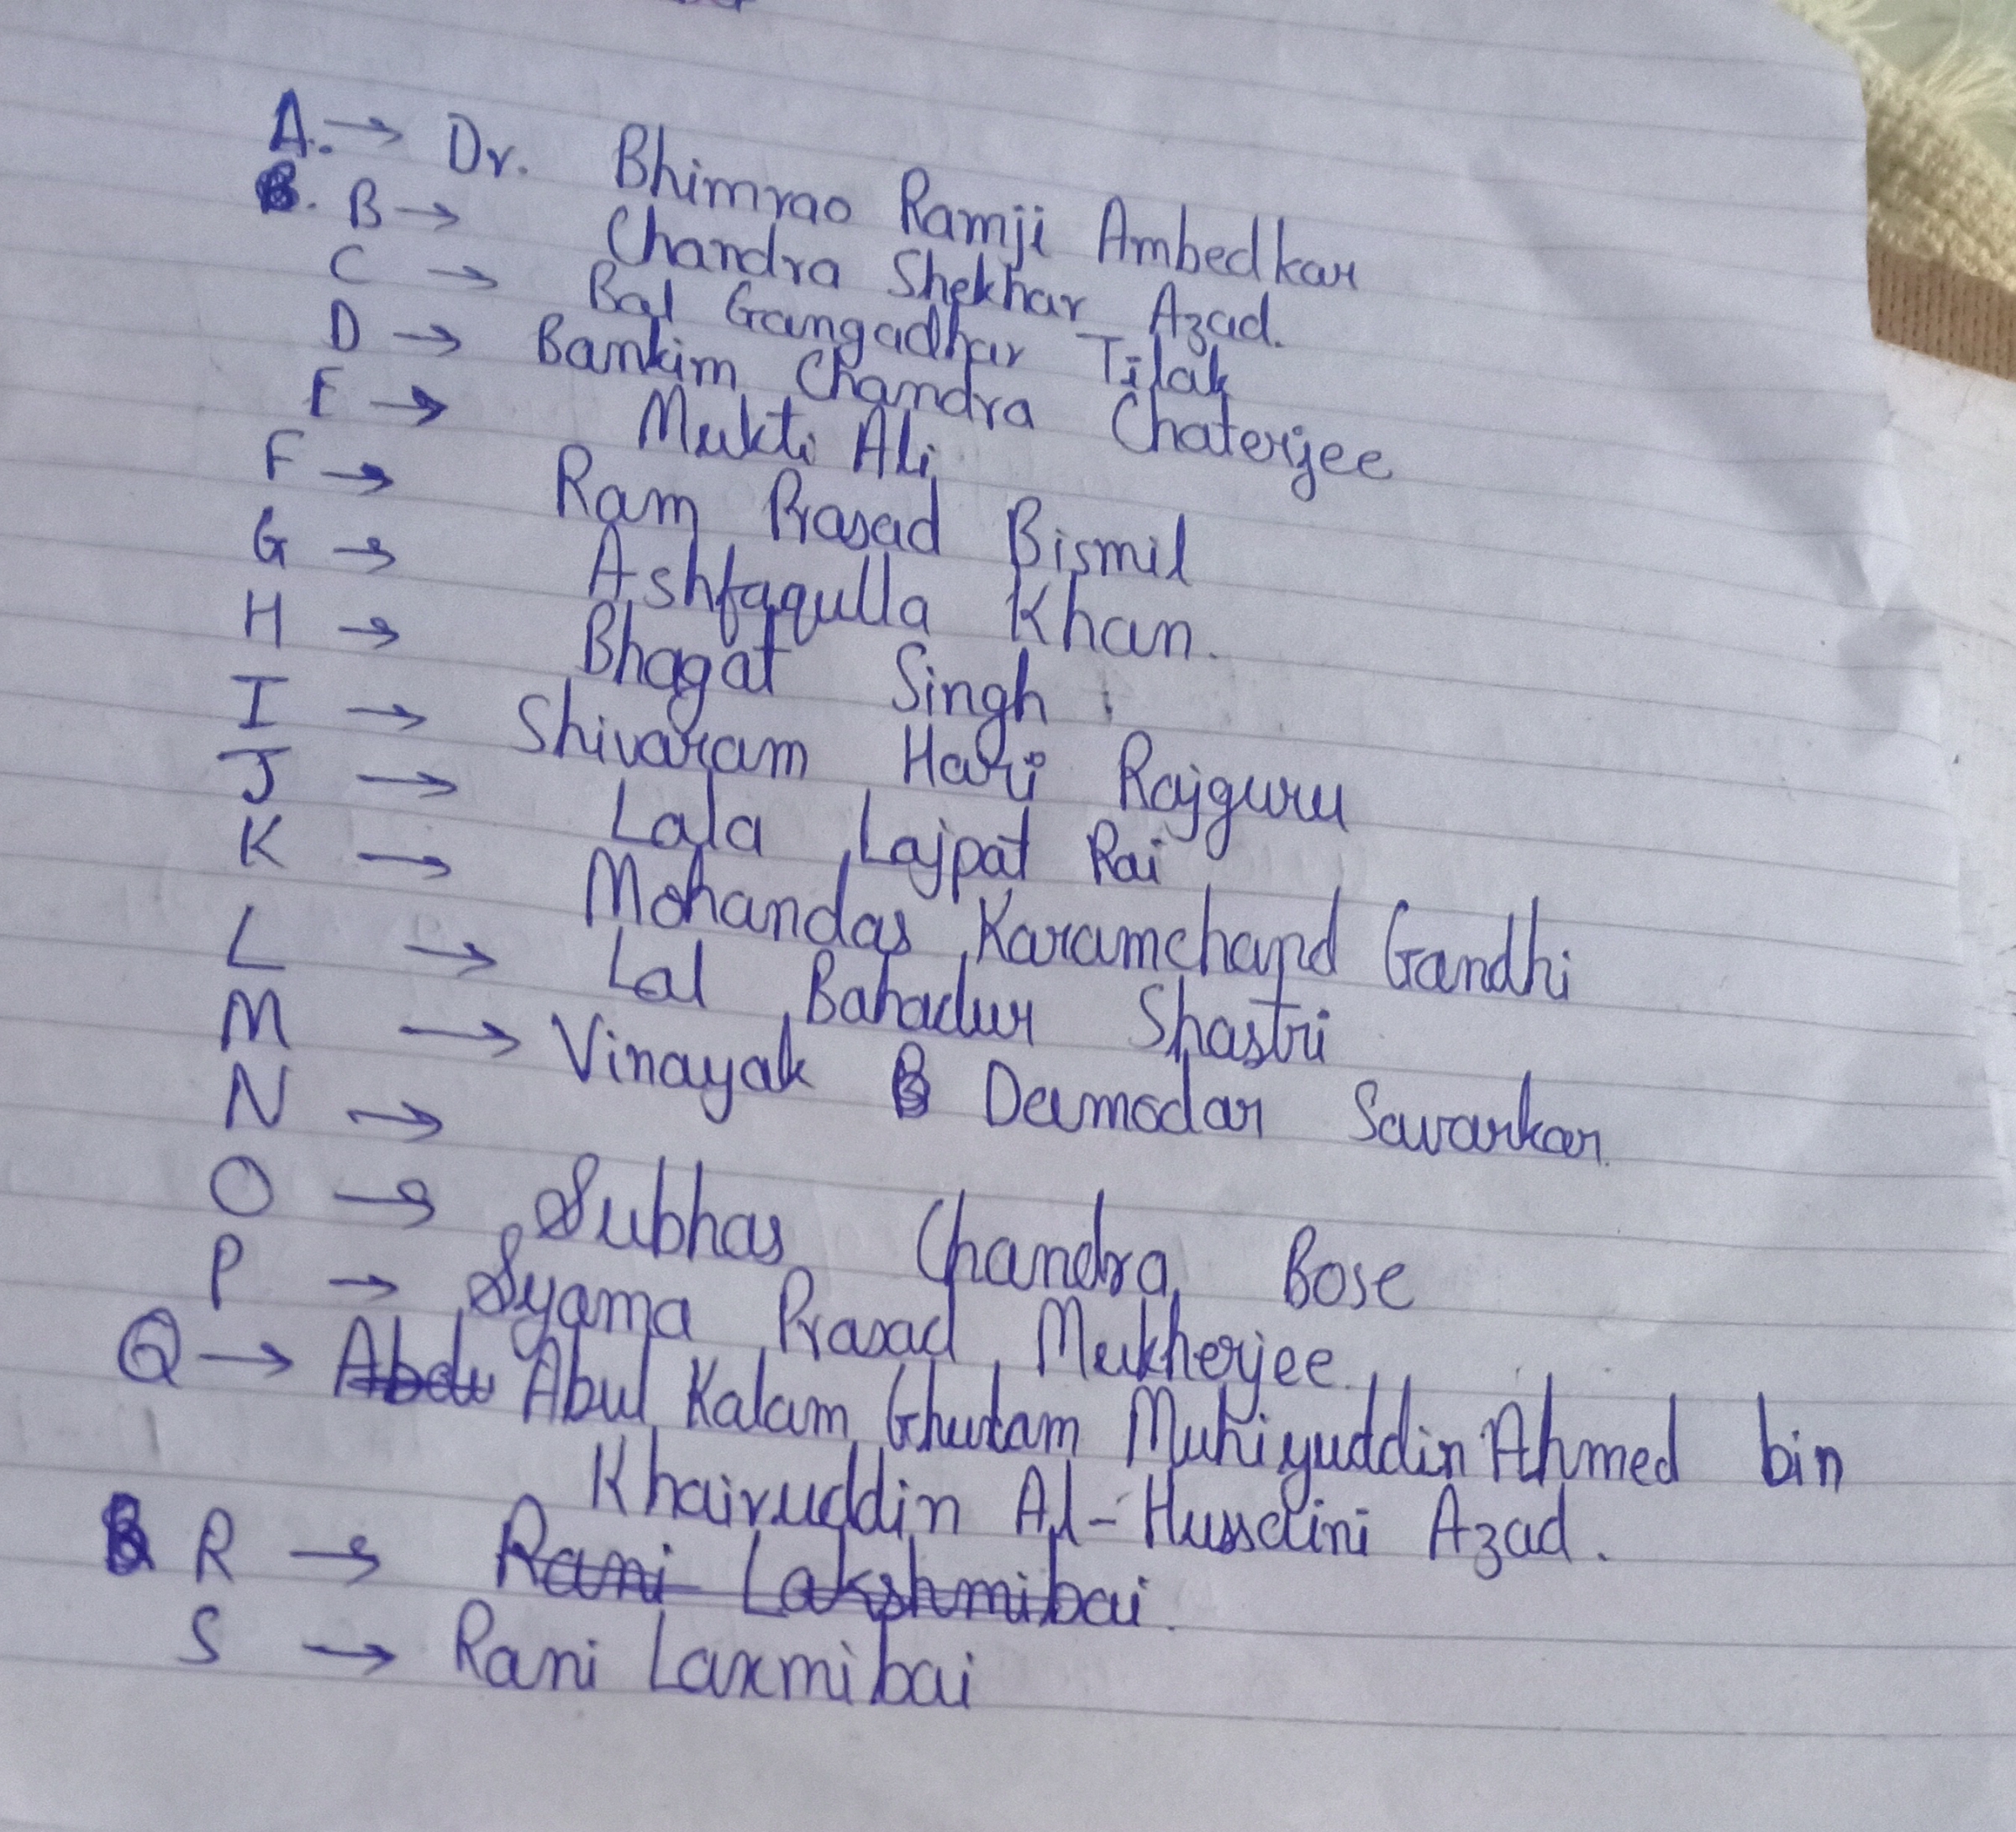 A. → Dr. Bhimrao Ramji Ambedkar
B → Chandra Shekhar Azad.
C → Bal Gangadhar Tilak
D → Bankim Chandra Chaterjee
E → Mukti Ali
F → Ram Prasad Bismil
G → Ashfaqulla Khan.
H → Bhagat Singh
I → Shivaram Hari Rajguru
J → Lala Lajpat Rai
K → Mohandas Karamchand Gandhi
L → Lal Bahadur Shastri
M → Vinayak Damodar Savarkar.
N →
O → Subhas Chandra Bose
P → Syama Prasad Mukherjee
Q → Abul Kalam Ghulam Muhiyuddin Ahmed bin
Khairuddin Al-Hussaini Azad.
R → Rani Lakshmibai.
S → Rani Laxmibai